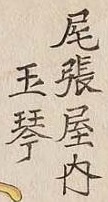 尾張屋内
玉琴